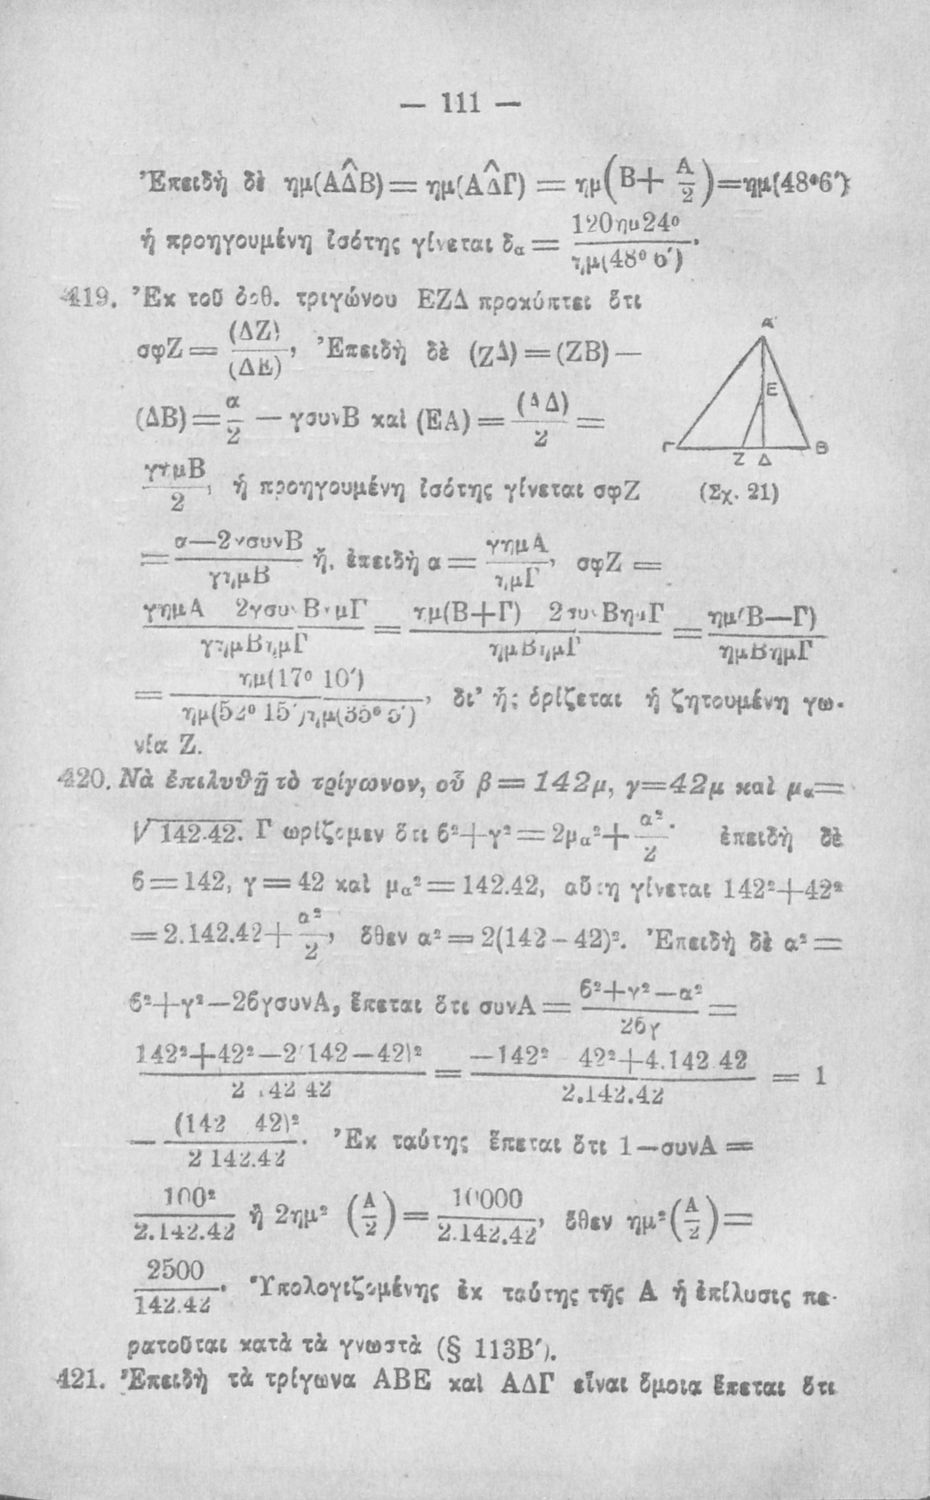 — 111 —
Ἐπειδὴ δὲ ημ(ΑΔ̂Β) = ημ(ΑΔ̂Γ) = ημ(Β + Α/2) = ημ(48°6′)
ἡ προηγουμένη ἰσότης γίνεται δα = 120ημ24° / ημ(48° 6′).
419. Ἐκ τοῦ ὀρθ. τριγώνου ΕΖΔ προκύπτει ὅτι
σφΖ = (ΔΖ) / (ΔΕ), Ἐπειδὴ δὲ (ΖΔ) = (ΖΒ) —
(ΔΒ) = α/2 — γσυνΒ καὶ (ΕΔ) = (ΑΔ)/2 =
γημΒ/2, ἡ προηγουμένη ἰσότης γίνεται σφΖ
= α—2γσυνΒ / γημΒ ἤ, ἐπειδὴ α = γημΑ / ημΓ, σφΖ =
γημΑ 2γσυνΒημΓ / γημΒημΓ = ημ(Β+Γ) 2συνΒημΓ / ημΒημΓ = ημ(Β—Γ) / ημΒημΓ
= ημ(17° 10′) / ημ(52° 15′)ημ(35° 5′), δι' ἧς ὁρίζεται ἡ ζητουμένη γω-
νία Ζ.
Α
Ε
Γ Ζ Δ Β
(Σχ. 21)
420. Νὰ ἐπιλυθῇ τὸ τρίγωνον, οὗ β = 142μ, γ=42μ καὶ μα=
√142.42. Γνωρίζομεν ὅτι β²+γ² = 2μα²+ α²/2. ἐπειδὴ δὲ
β = 142, γ = 42 καὶ μα² = 142.42, αὕτη γίνεται 142²+42²
= 2.142.42+ α²/2, ὅθεν α² = 2(142 – 42)². Ἐπειδὴ δὲ α² =
β²+γ²—2βγσυνΑ, ἕπεται ὅτι συνΑ = β²+γ²—α² / 2βγ =
142²+42²—2(142—42)² / 2.142 42 = —142² 42²+4.142 42 / 2.142.42 = 1
— (142 42)² / 2 142.42. Ἐκ ταύτης ἕπεται ὅτι 1—συνΑ =
100² / 2.142.42 ἢ 2ημ² (Α/2) = 10000 / 2.142.42, ὅθεν ημ²(Α/2) =
2500 / 142.42. Ὑπολογιζομένης ἐκ ταύτης τῆς Α ἡ ἐπίλυσις πε-
ρατοῦται κατὰ τὰ γνωστὰ (§ 113Β′).
421. Ἐπειδὴ τὰ τρίγωνα ΑΒΕ καὶ ΑΔΓ εἶναι ὅμοια ἕπεται ὅτι